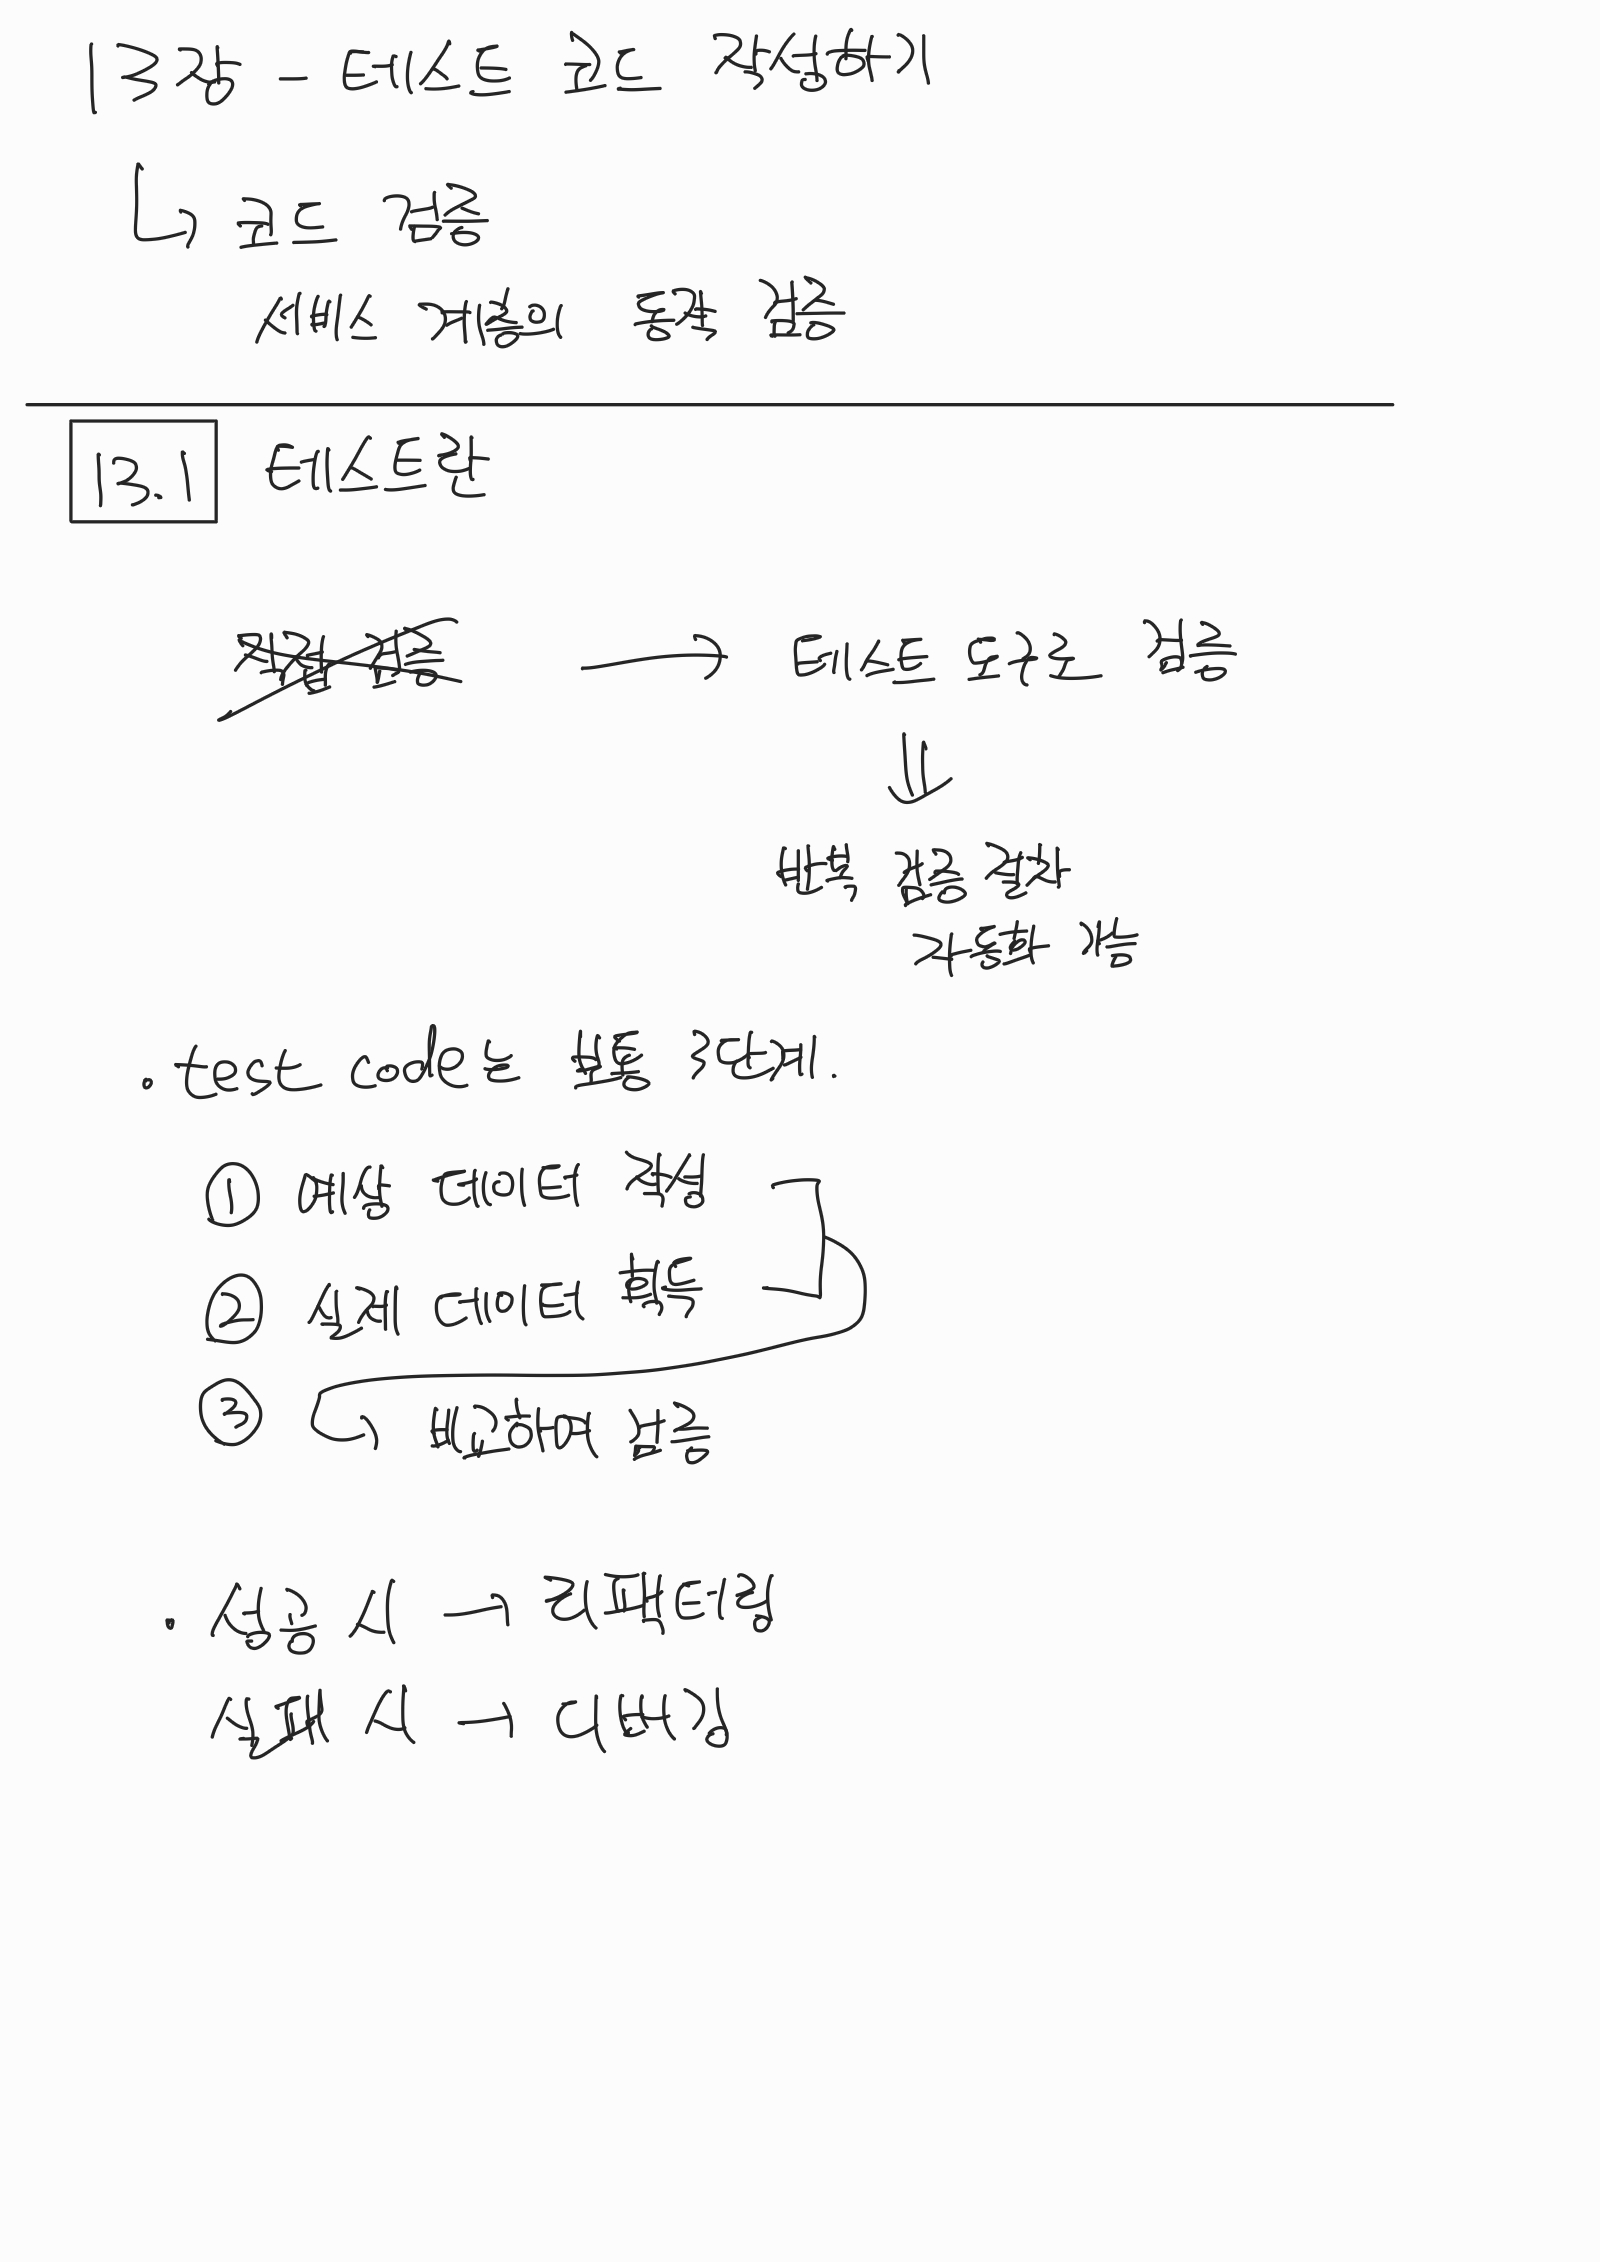 13장 - 테스트 코드 작성하기
↳ 코드 검증
서비스 계층의 동작 검증
13.1 테스트란
직접 검증 → 테스트 도구로 검증
⇓
반복 검증 절차
자동화 가능
· test code는 보통 3단계.
① 예상 데이터 작성
② 실제 데이터 획득
③ ↳ 비교하여 검증
· 성공 시 → 리팩터링
실패 시 → 디버깅